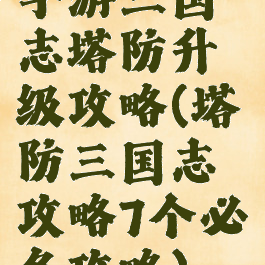 手游三国
志塔防升
级攻略(塔
防三国志
攻略7个必
备攻略)